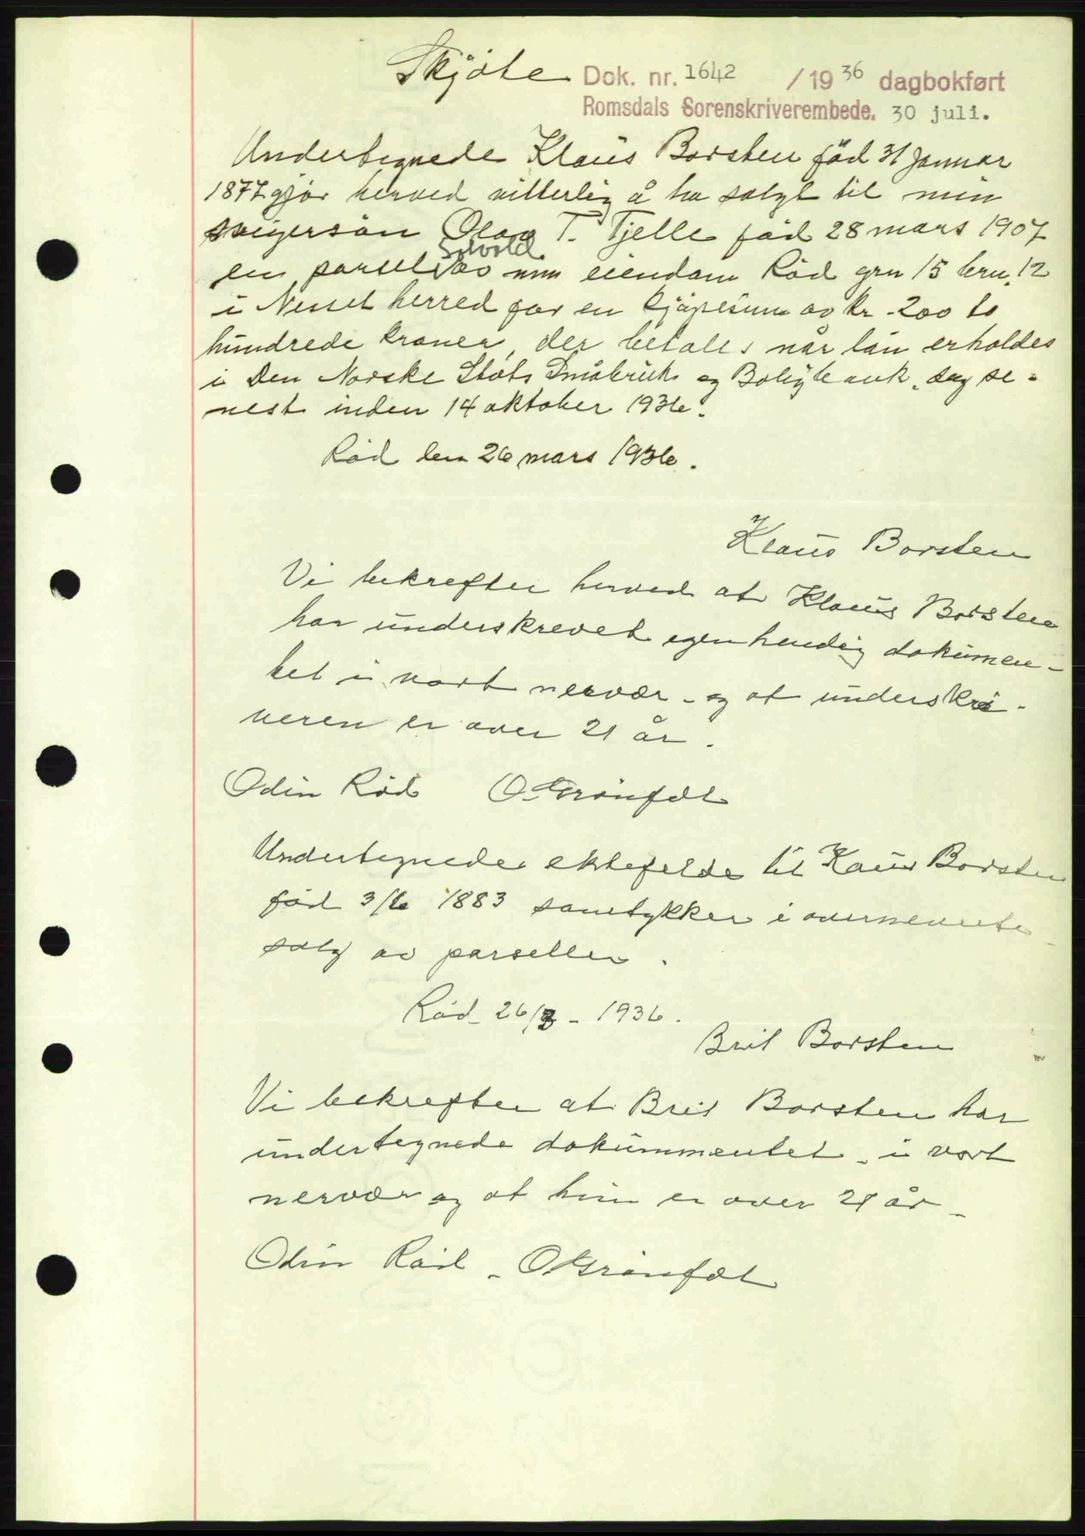 Skjøte
Dok. nr. 1642 / 19 36 dagbokført
Romsdals Sorenskriverembede. 30 juli.
Undertegnede Klaus Borsten född 31 Januar
1877 gjør herved vitterlig å ha solgt til min
svigersøn Olav T. Tjelle född 28 mars 1907
Solvold
en parsel av min eiendom Rød grn 15 brn. 12
i Nesset herred for en kjøpesum av kr. 200 to
hundrede kroner, der betales når lån erholdes
i Den Norske Stats Småbruk og Boligbank, dog se-
nest inden 14 oktober 1936.
Rød den 26 mars 1936.
Klaus Borsten
Vi bekrefter herved at Klaus Borsten
har underskrevet egenhendig dokumen-
tet i vort nervær - og at underskri-
veren er over 21 år.
Odin Rød O. Grønfot
Undertegnede ektefelde til Klaus Borsten
född 3/6 1883 samtykker i overnevnte
salg av parsellen.
Rød 26/3 - 1936.
Brit Borsten
Vi bekrefter at Brit Borsten har
undertegnede dokummentet i vort
nervær og at hun er over 21 år -
Odin Rød - O Grønfot